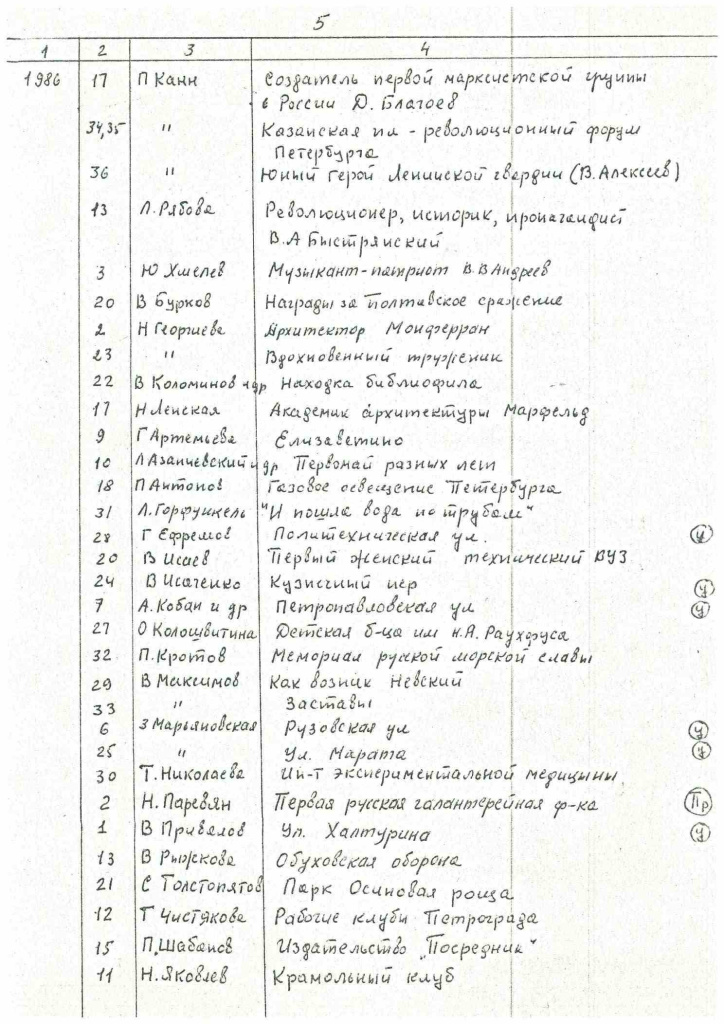 5
1 2 3 4
1986 17 П Канн Создатель первой марксистской группы
в России Д. Благоев
34,35 " Казанская пл - революционный форум
Петербурга
36 " Юный герой Ленинской гвардии (В. Алексеев)
13 Л. Рябова Революционер, историк, пропагандист
В.А Быстрянский
3 Ю Хмелев Музыкант-патриот В.В Андреев
20 В Бурков Награды за Полтавское сражение
2 Н Георгиева Архитектор Монферран
23 " Вдохновенный труженик
22 В Коломинов и др Находка библиофила
17 Н Ленская Академик архитектуры Марфельд
9 Г Артемьева Елизаветино
10 Л Азанчевский и др Первомай разных лет
18 П Антонов Газовое освещение Петербурга
31 Л. Горфункель "И пошла вода по трубам"
28 Г Ефремов Политехническая ул. У
20 В Исаев Первый женский технический ВУЗ
24 В Исаченко Кузнечный пер У
7 А. Кобак и др Петропавловская ул У
27 О Колошвитина Детская б-ца им К.А. Раухфуса
32 П. Кротов Мемориал русской морской славы
29 В Максимов Как возник Невский
33 " Заставы
6 З Марьяновская Рузовская ул У
25 " Ул. Марата У
30 Т. Николаева Ин-т экспериментальной медицины
2 Н. Паревян Первая русская галантерейная ф-ка Пр
1 В Привалов Ул. Халтурина У
13 В Рыжкова Обуховская оборона
21 С Толстопятов Парк Осиновая роща
12 Т Чистякова Рабочие клубы Петрограда
15 П. Шабанов Издательство „Посредник"
11 Н. Яковлев Крамольный клуб